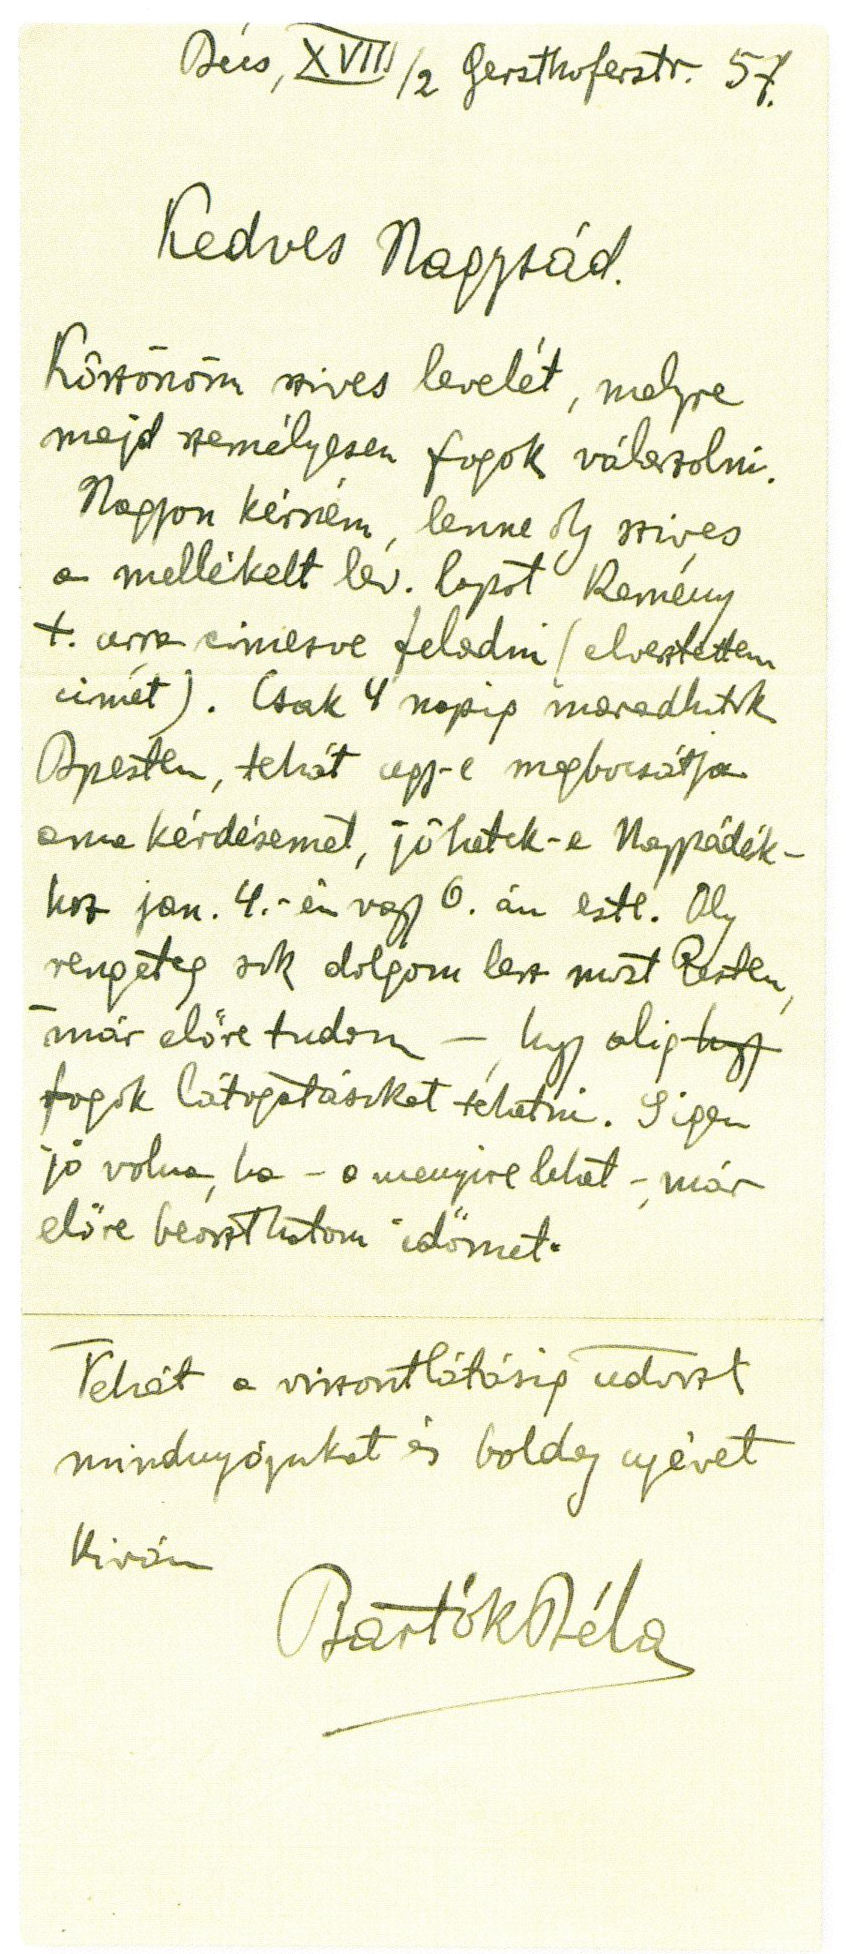 Bécs, XVIII/2 Gersthoferstr. 57.
Kedves Nagysád.
Köszönöm szives levelét, melyre
majd személyesen fogok válaszolni.
Nagyon kérném, lenne oly szives
a mellékelt lev. lapot Remény
t. urra cimezve feladni (elvesztettem
cimét). Csak 4 napig maradhatok
Bpesten, tehát ugy-e megbocsátja
ama kérdésemet, jöhetek-e Nagysádék-
hoz jan. 4.-én vagy 6. án este. Oly
rengeteg sok dolgom lesz most Pesten,
már előre tudom –, hogy alig hogy
fogok látogatásokat tehetni. Igen
jó volna, ha – a menyire lehet –, már
előre beoszthatom időmet.
Tehát a viszontlátásig üdvözl
mindnyájukat és boldog ujévet
kiván
Bartók Béla